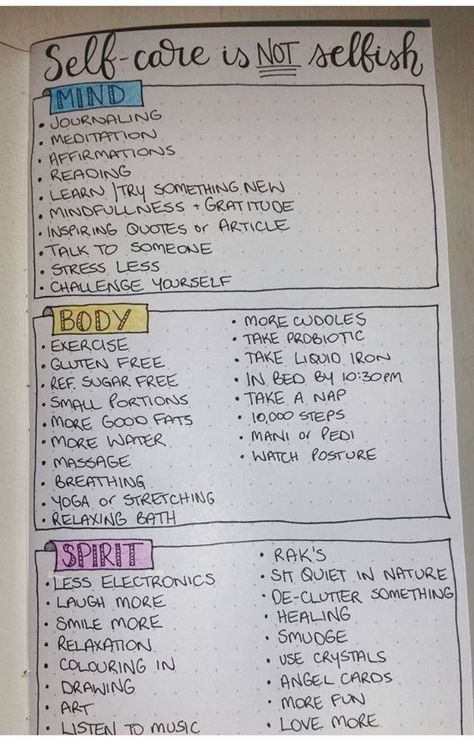 Self-care is NOT selfish
MIND
• JOURNALING
• MEDITATION
• AFFIRMATIONS
• READING
• LEARN / TRY SOMETHING NEW
• MINDFULLNESS + GRATITUDE
• INSPIRING QUOTES or ARTICLE
• TALK TO SOMEONE
• STRESS LESS
• CHALLENGE YOURSELF
BODY
• EXERCISE
• GLUTEN FREE
• REF. SUGAR FREE
• SMALL PORTIONS
• MORE GOOD FATS
• MORE WATER
• MASSAGE
• BREATHING
• YOGA or STRETCHING
• RELAXING BATH
• MORE CUDDLES
• TAKE PROBIOTIC
• TAKE LIQUID IRON
• IN BED BY 10:30PM
• TAKE A NAP
• 10,000 STEPS
• MANI or PEDI
• WATCH POSTURE
SPIRIT
• LESS ELECTRONICS
• LAUGH MORE
• SMILE MORE
• RELAXATION
• COLOURING IN
• DRAWING
• ART
• LISTEN TO MUSIC
• RAK'S
• SIT QUIET IN NATURE
• DE-CLUTTER SOMETHING
• HEALING
• SMUDGE
• USE CRYSTALS
• ANGEL CARDS
• MORE FUN
• LOVE MORE